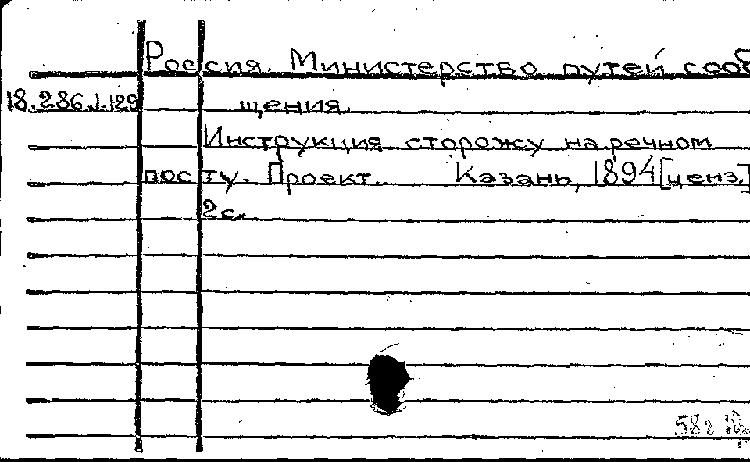 Россия. Министерство путей сооб
18.286.1.129 щения.
Инструкция сторожу на речном
посту. Проект. Казань, 1894 [ценз.]
2с.